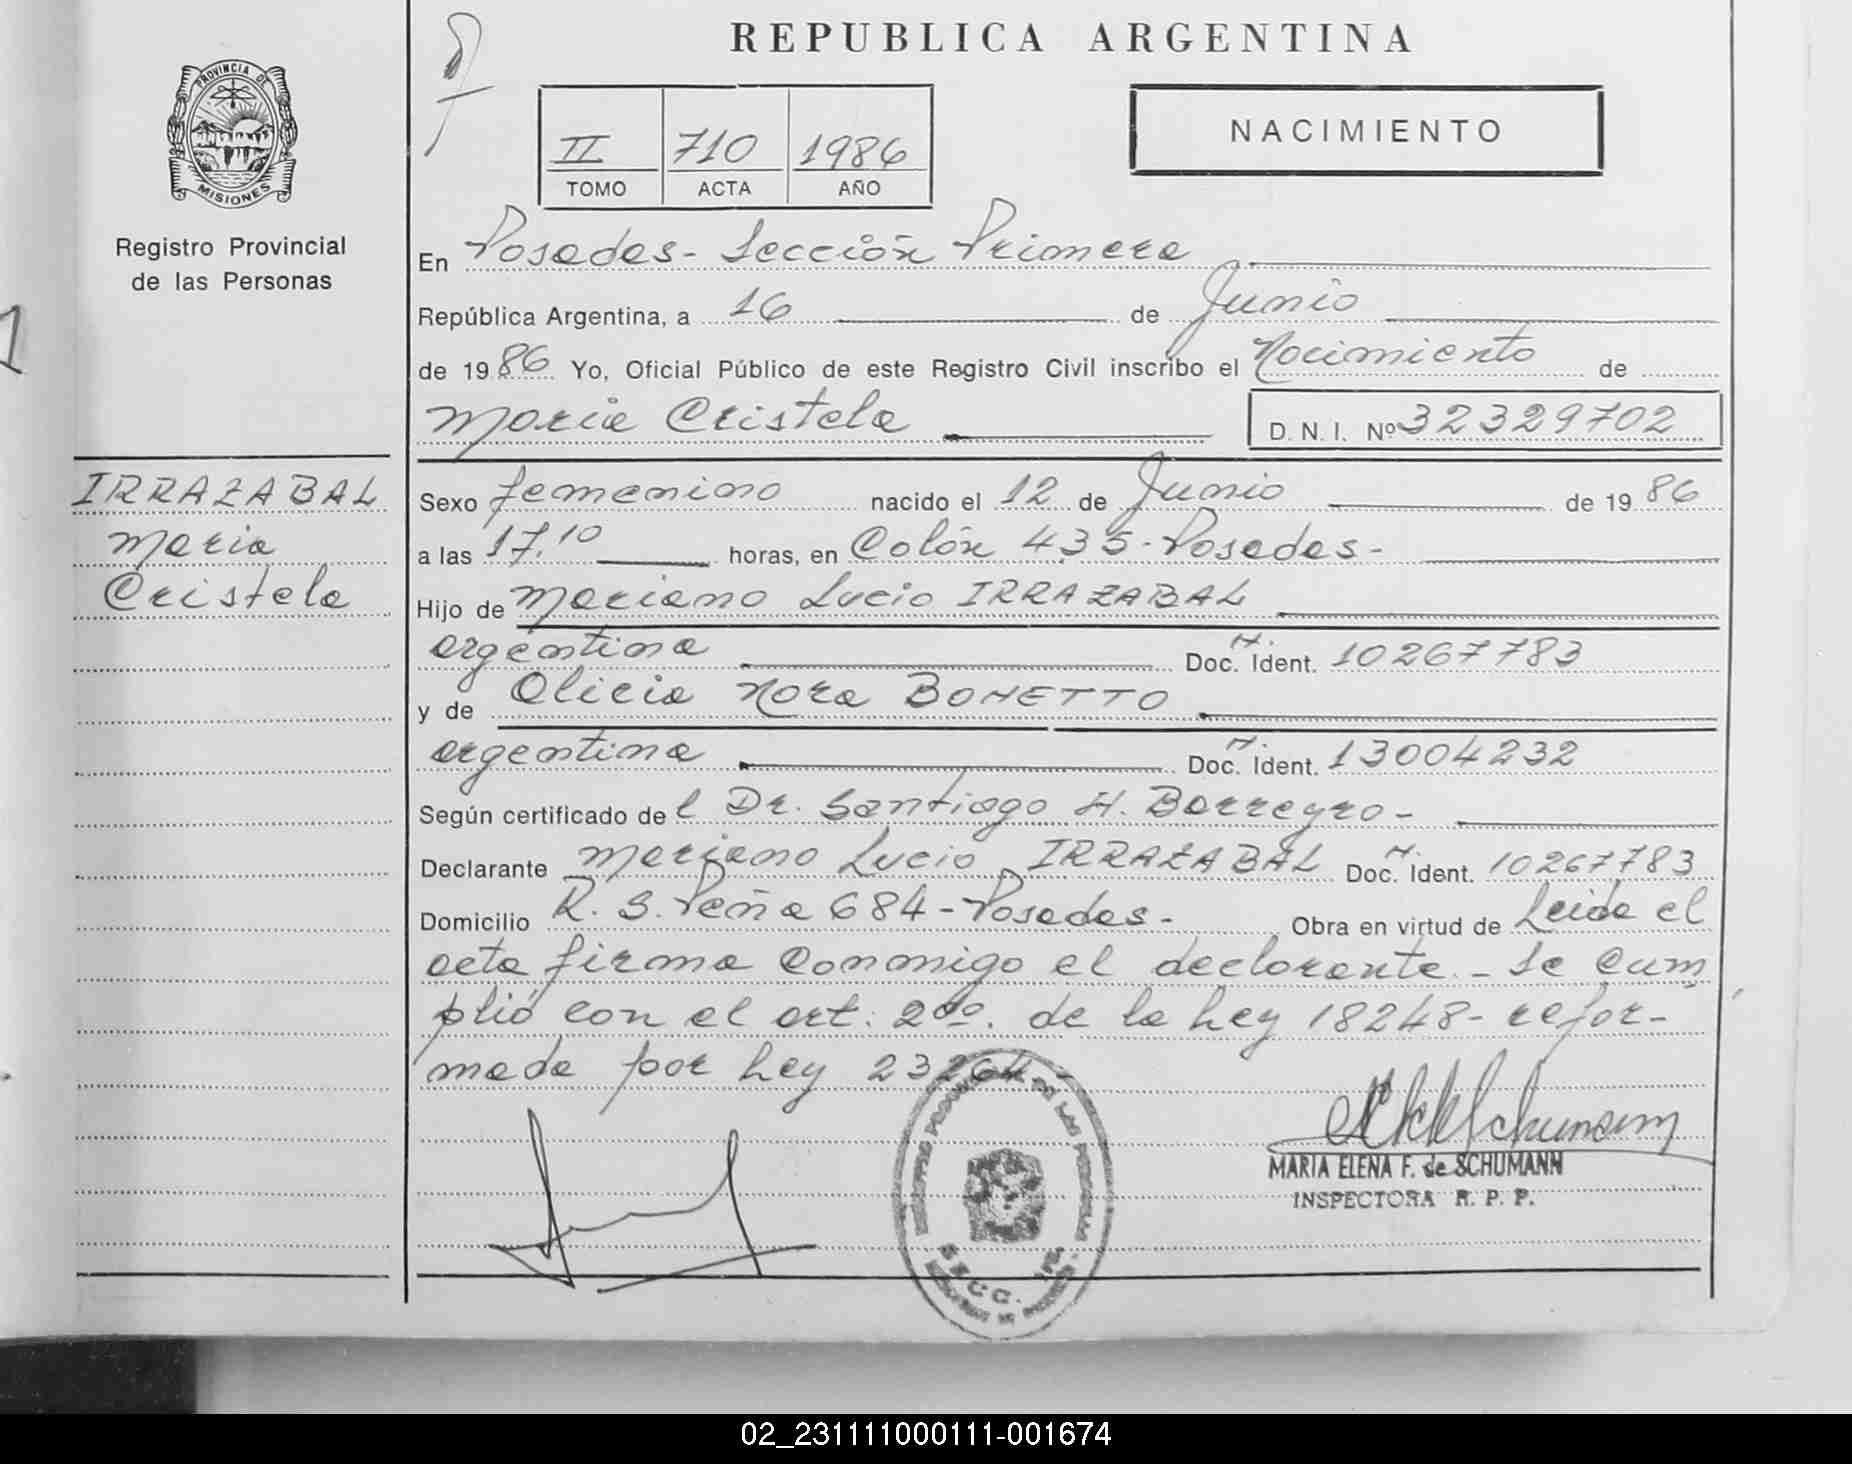 REPUBLICA ARGENTINA
PROVINCIA DE
MISIONES
Registro Provincial
de las Personas
II 710 1986
TOMO ACTA AÑO
NACIMIENTO
En Posadas - Sección Primera
República Argentina, a 16 de Junio
de 1986 Yo, Oficial Público de este Registro Civil inscribo el Nacimiento de
Maria Cristela
D. N. I. Nº 32329702
IRRAZABAL
Maria
Cristela
Sexo femenino nacido el 12 de Junio de 1986
a las 17.10 horas, en Colón 435 - Posadas -
Hijo de Mariano Lucio IRRAZABAL
argentina Doc. Ident. 10267783
y de Alicia Nora BONETTO
argentina Doc. Ident. 13004232
Según certificado de l Dr. Santiago H. Barreyro -
Declarante Mariano Lucio IRRAZABAL Doc. Ident. 10267783
Domicilio R. S. Peña 684 - Posadas - Obra en virtud de Leida el
acta firma conmigo el declarante. - Se cum
plió con el art. 2do. de la Ley 18248 - refor-
mada por Ley 23264 -
MARIA ELENA F. de SCHUMANN
INSPECTORA R. P. P.
SECC. 1ra.
02_231111000111-001674